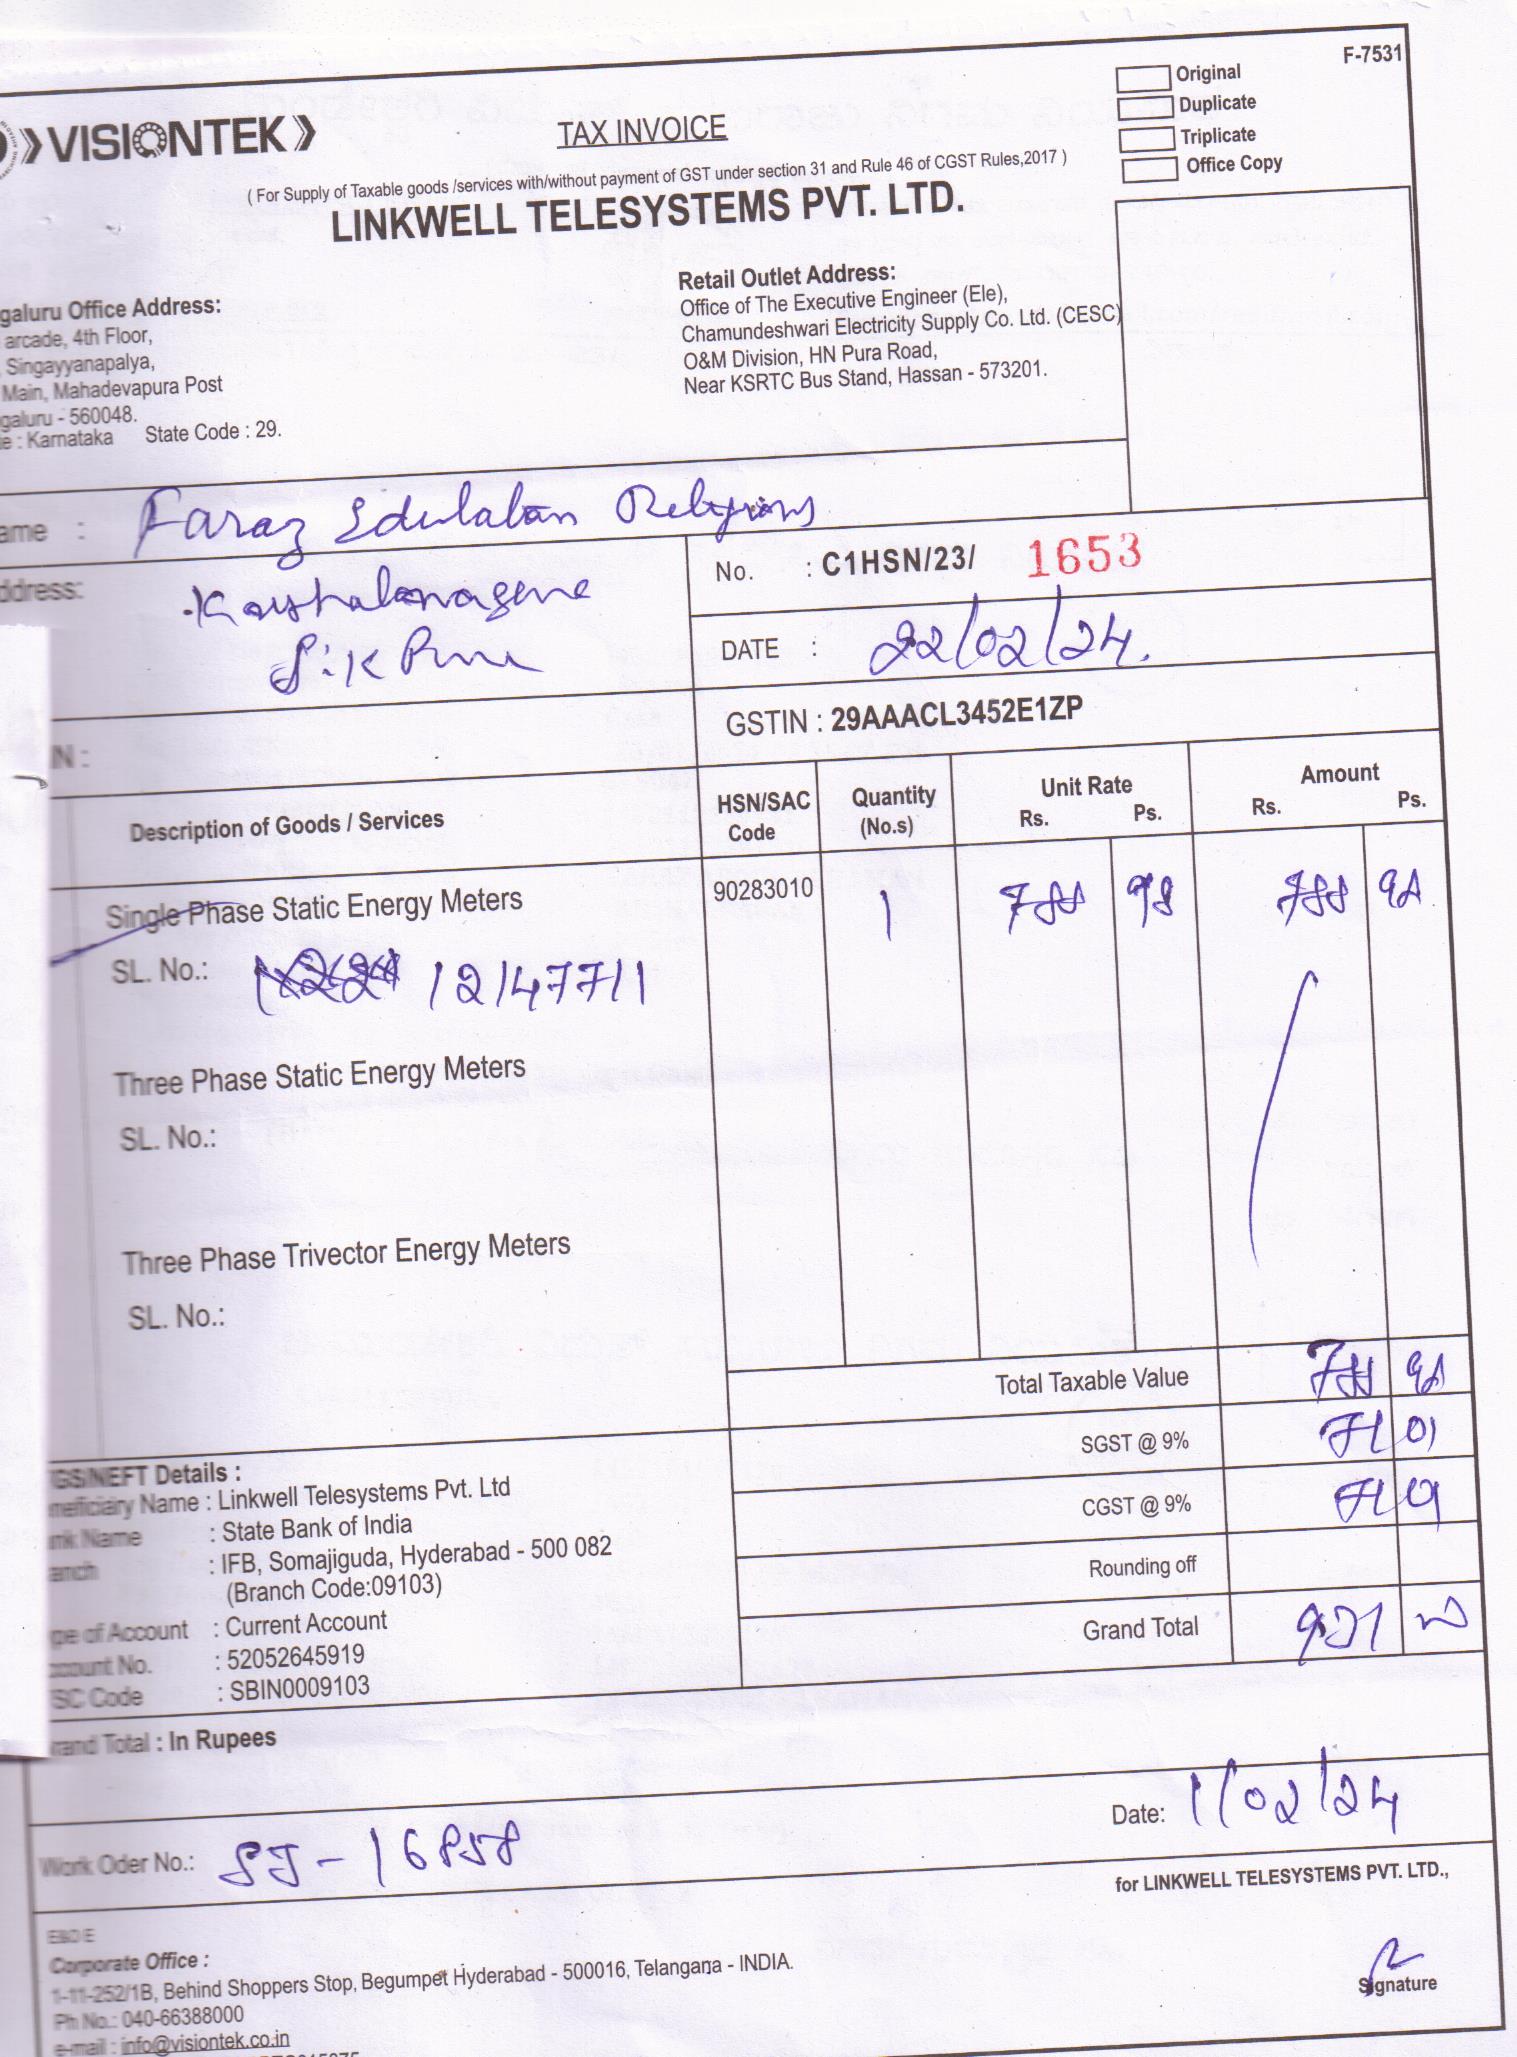 F-7531
Original
Duplicate
Triplicate
Office Copy
VISIONTEK
TAX INVOICE
( For Supply of Taxable goods /services with/without payment of GST under section 31 and Rule 46 of CGST Rules,2017 )
LINKWELL TELESYSTEMS PVT. LTD.
galuru Office Address:
arcade, 4th Floor,
Singayyanapalya,
Main, Mahadevapura Post
galuru - 560048.
e : Karnataka State Code : 29.
Retail Outlet Address:
Office of The Executive Engineer (Ele),
Chamundeshwari Electricity Supply Co. Ltd. (CESC)
O&M Division, HN Pura Road,
Near KSRTC Bus Stand, Hassan - 573201.
ame : Faraz
ddress:
No. : C1HSN/23/ 1653
DATE : 22/02/24.
GSTIN : 29AAACL3452E1ZP
N :
Description of Goods / Services
HSN/SAC Code
Quantity (No.s)
Unit Rate
Rs. Ps.
Amount
Rs. Ps.
Single Phase Static Energy Meters 90283010 1
SL. No.: 12147711
Three Phase Static Energy Meters
SL. No.:
Three Phase Trivector Energy Meters
SL. No.:
Total Taxable Value
SGST @ 9% 71 01
CGST @ 9% 71 01
Rounding off
Grand Total
GS/NEFT Details :
neficiary Name : Linkwell Telesystems Pvt. Ltd
nk Name : State Bank of India
anch : IFB, Somajiguda, Hyderabad - 500 082
(Branch Code:09103)
pe of Account : Current Account
ccount No. : 52052645919
SC Code : SBIN0009103
rand Total : In Rupees
Work Oder No.: SJ-16858
Date: 1/02/24
for LINKWELL TELESYSTEMS PVT. LTD.,
Signature
E&O E
Corporate Office :
1-11-252/1B, Behind Shoppers Stop, Begumpet Hyderabad - 500016, Telangana - INDIA.
Ph No.: 040-66388000
e-mail : info@visiontek.co.in